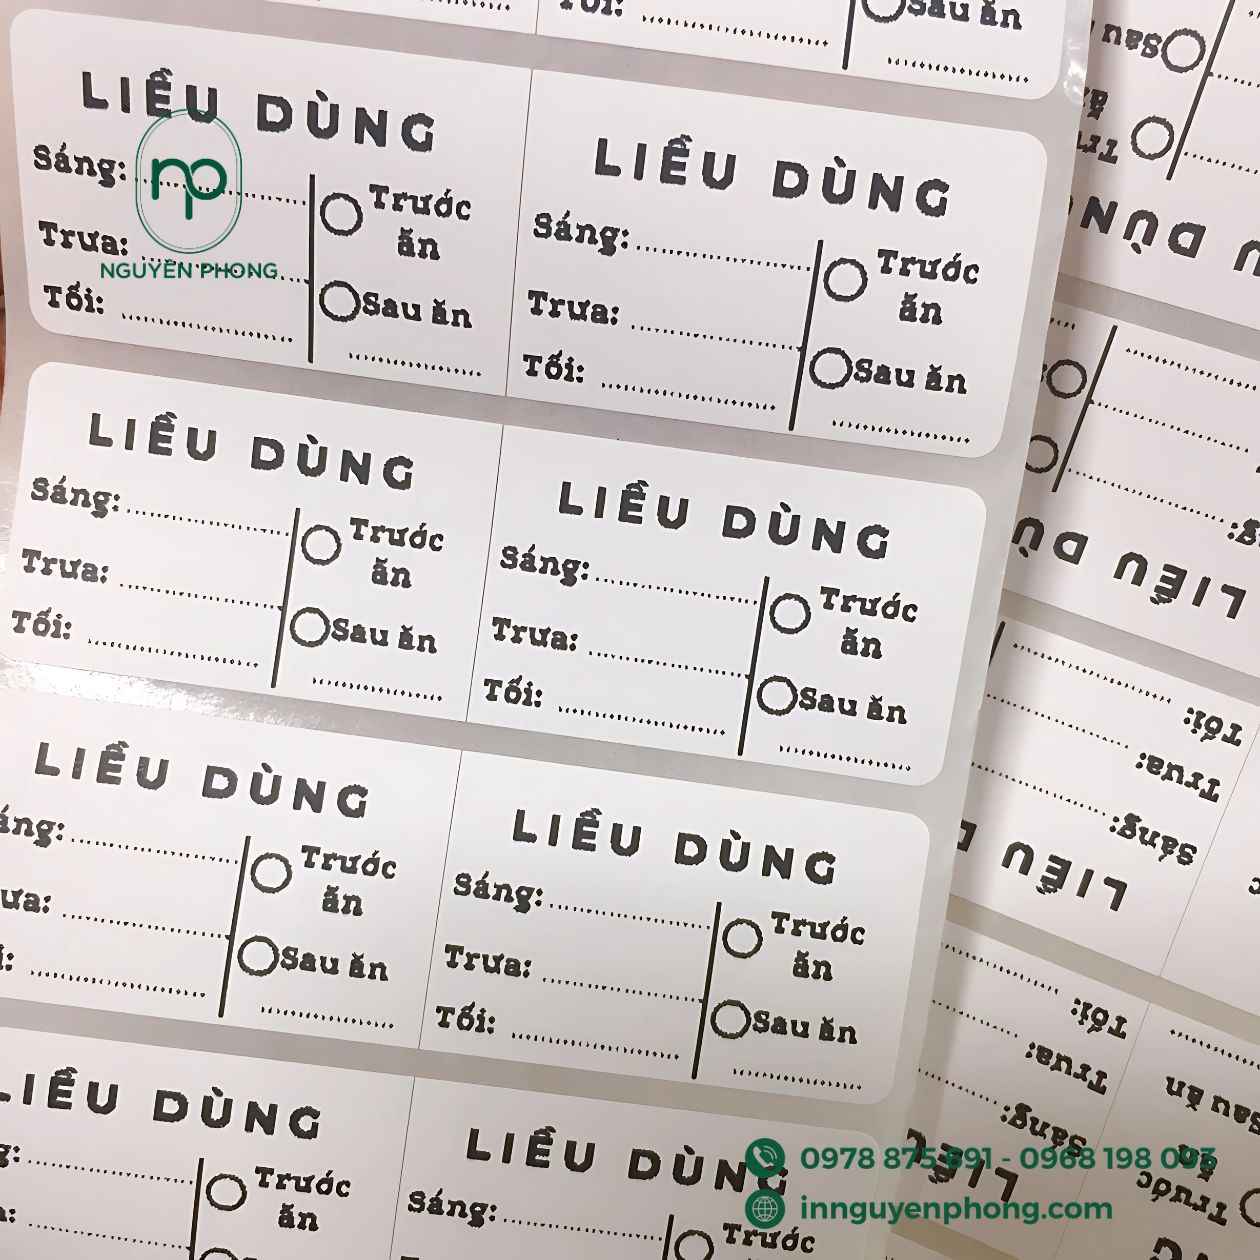 Tối:
Sau ăn
LIỀU DÙNG
Sáng:
Trưa:
Tối:
Trước
ăn
Sau ăn
NGUYÊN PHONG
LIỀU DÙNG
Sáng:
Trưa:
Tối:
Trước
ăn
Sau ăn
LIỀU DÙNG
Sáng:
Trưa:
Tối:
Trước
ăn
Sau ăn
LIỀU DÙNG
Sáng:
Trưa:
Tối:
Trước
ăn
Sau ăn
LIỀU DÙNG
Trước
ăn
Sau ăn
LIỀU DÙNG
Sáng:
Trưa:
Tối:
Trước
ăn
Sau ăn
LIỀU DÙNG
Trước
ăn
LIỀU DÙNG
Sáng:
Trước
Sau
DÙNG
LIỀU
Tối:
Trưa:
Sáng:
LIỀU
Tối:
Trưa:
Sáng:
LIỀU
Sau ăn
ăn
Trước
0978 875 - 0968 198
innguyenphong.com